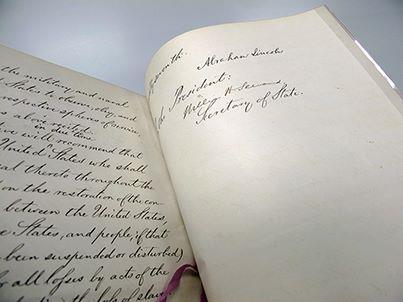 the military and naval
States to observe, obey, and
respective spheres of service,
above recited.
in due time
will recommend that
United States who shall
loyal thereto throughout the
on the restoration of the con-
between the United States,
States, and people, if that
been suspended or disturbed)
for all losses by acts of the
the loss of slaves
seventh.
Abraham Lincoln
the President:
William H Seward
Secretary of State.